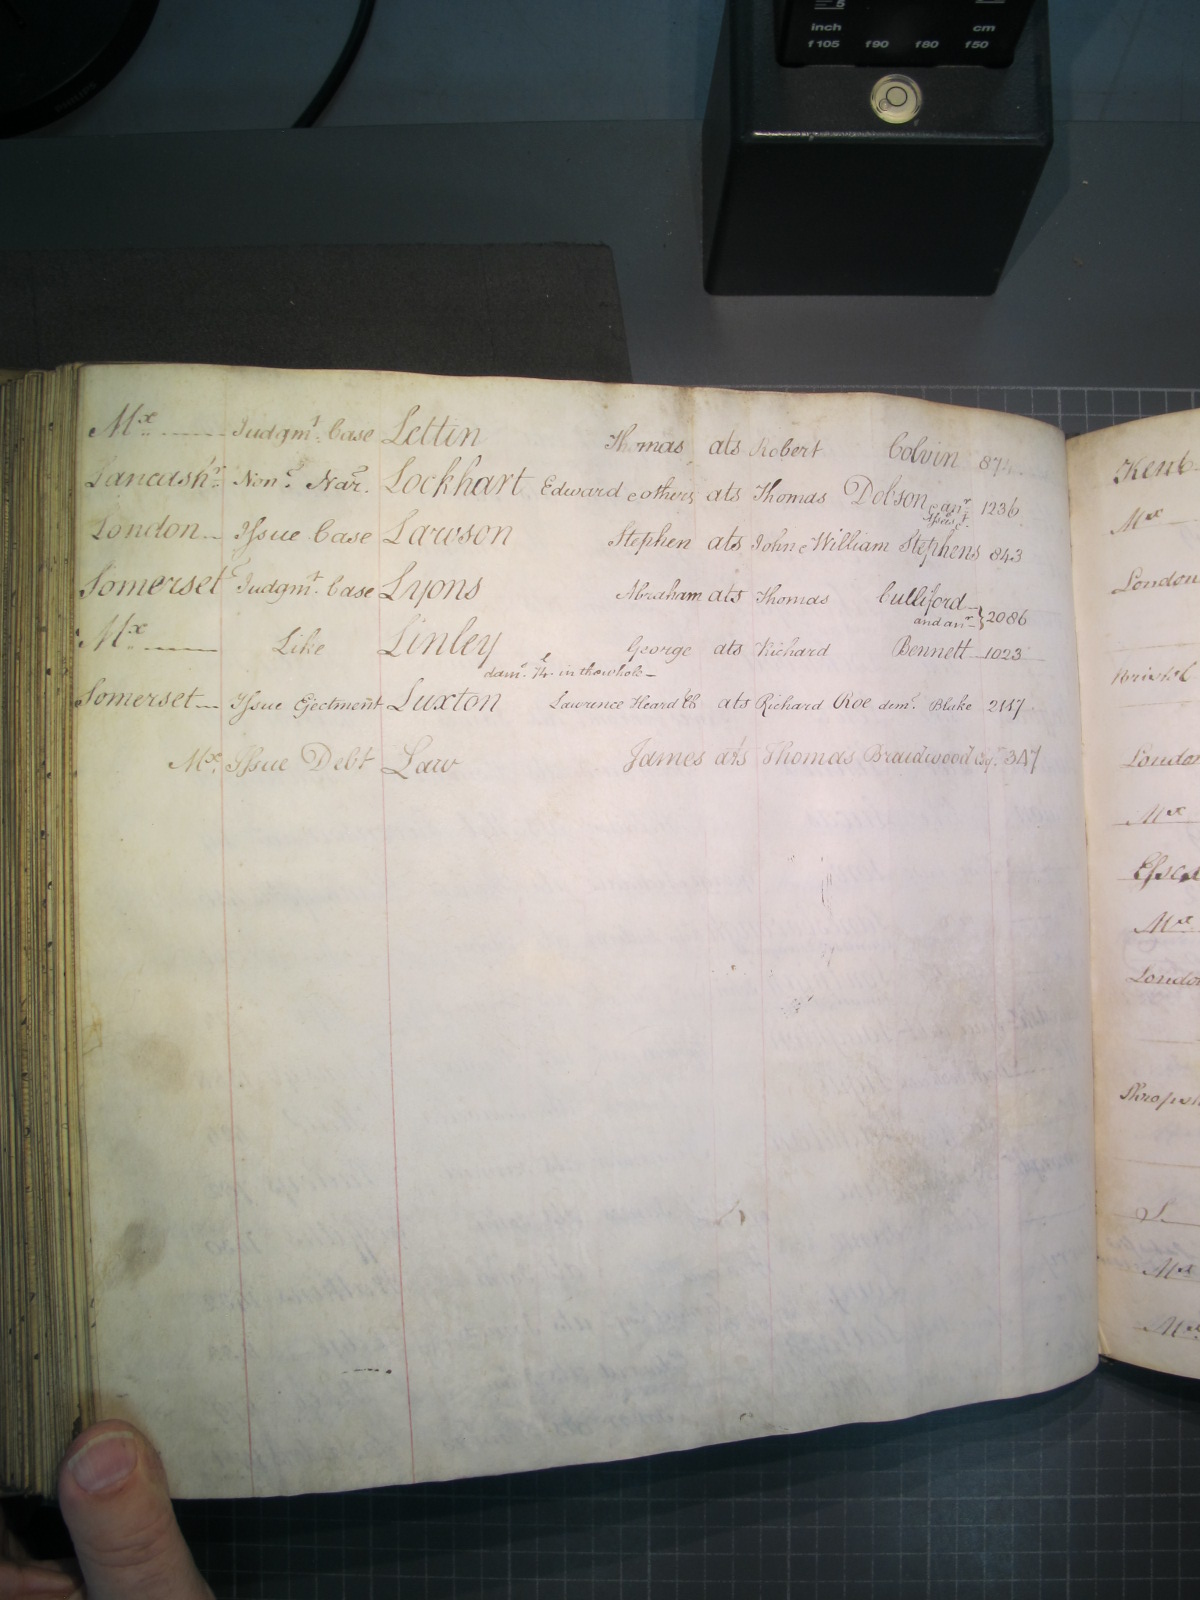 inch cm
f105 f90 f80 f50
Mx Judgmt. Case Lettin Thomas ats Robert Colvin 87
Lancashr. Non. Nar. Lockhart Edward & others ats Thomas Dobson & anr. 1236
London Issue Case Lawson Stephen ats John & William Stephens 843
Somerset Judgmt. Case Lyons Abraham ats Thomas Culliford
and anr. } 2086
Mx Like Linley George ats Richard Bennett 1023
in the whole
Somerset Issue Ejectment Luxton Lawrence Heard ats Richard Roe dem. Blake 2117
Mx Issue Debt Law James ats Thomas Braidwood Esqr. 347
Kent
Mx
London
Bristol
London
Mx
Essex
Mx
London
Mx
Mx